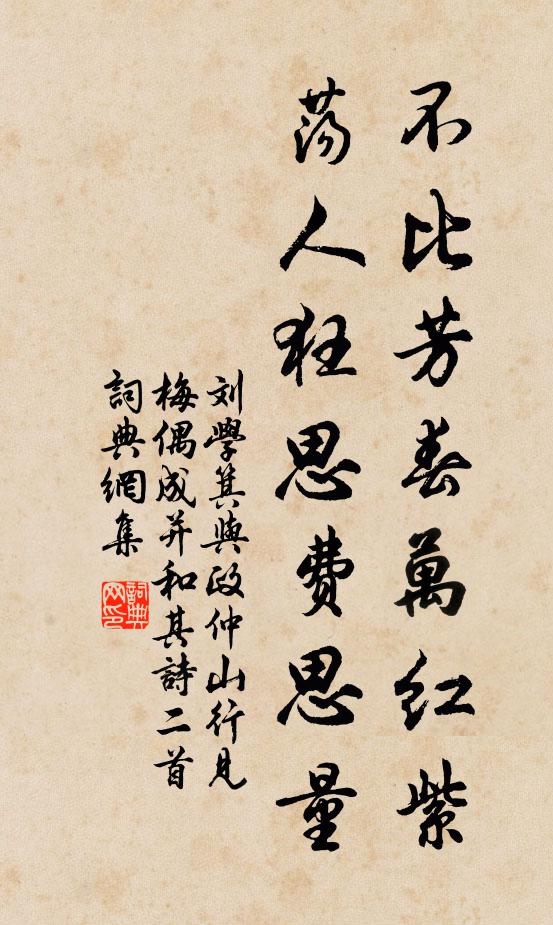 不比芳春萬紅紫
蕩人狂思費思量
刘學箕與政仲山行見
梅偶成并和其詩二首
詞典網集
詞典網印